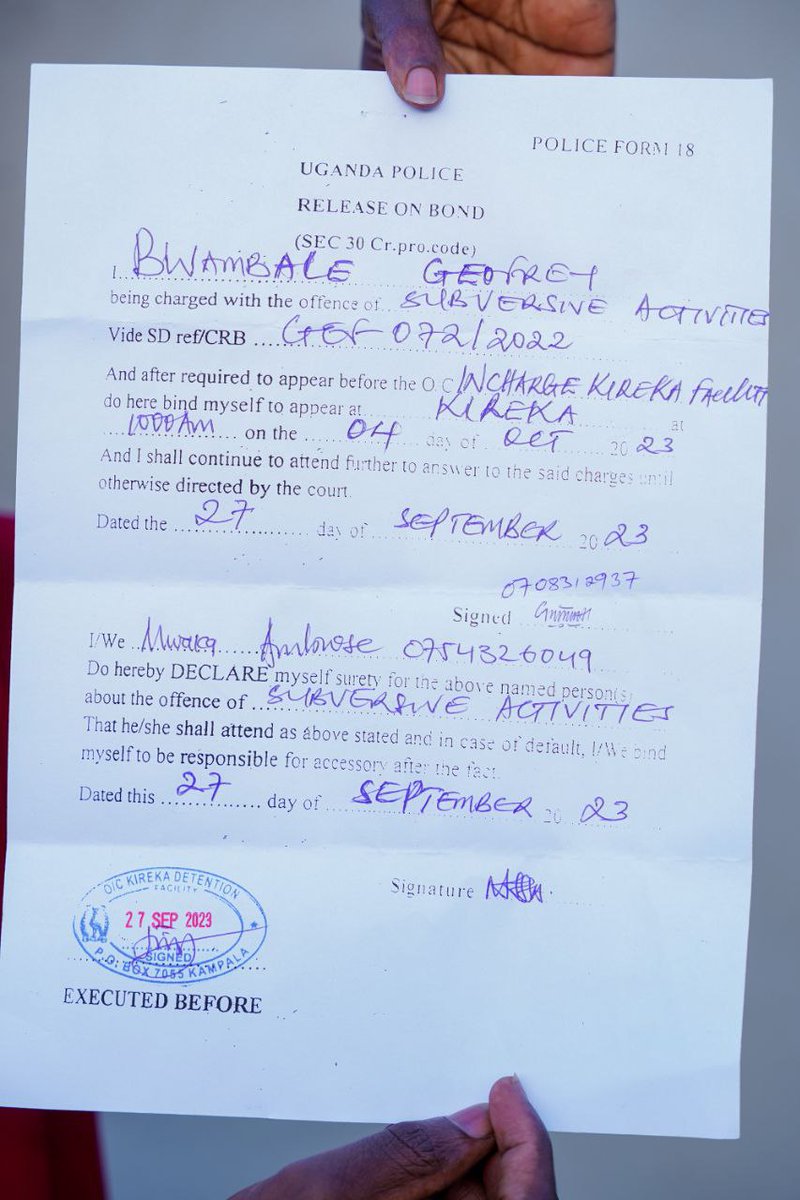 POLICE FORM 18
UGANDA POLICE
RELEASE ON BOND
(SEC 30 Cr.pro.code)
I..BWAMBALE GEOFREY
being charged with the offence of SUBVERSIVE ACTIVITIES
Vide SD ref/CRB ....GEF 072/2022
And after required to appear before the O C INCHARGE KIREKA Facility
do here bind myself to appear at KIREKA at
1000AM on the 04 day of OCT 2023
And I shall continue to attend further to answer to the said charges until
otherwise directed by the court.
Dated the 27 day of SEPTEMBER 2023
0708312937
Signed
I/We Mwaka Ambrose 0754326049
Do hereby DECLARE myself surety for the above named person(s)
about the offence of SUBVERSIVE ACTIVITIES
That he/she shall attend as above stated and in case of default, I/We bind
myself to be responsible for accessory after the fact.
Dated this 27 day of SEPTEMBER 2023
Signature
OIC KIREKA DETENTION
FACILITY
27 SEP 2023
SIGNED
P.O. BOX 7055 KAMPALA
EXECUTED BEFORE